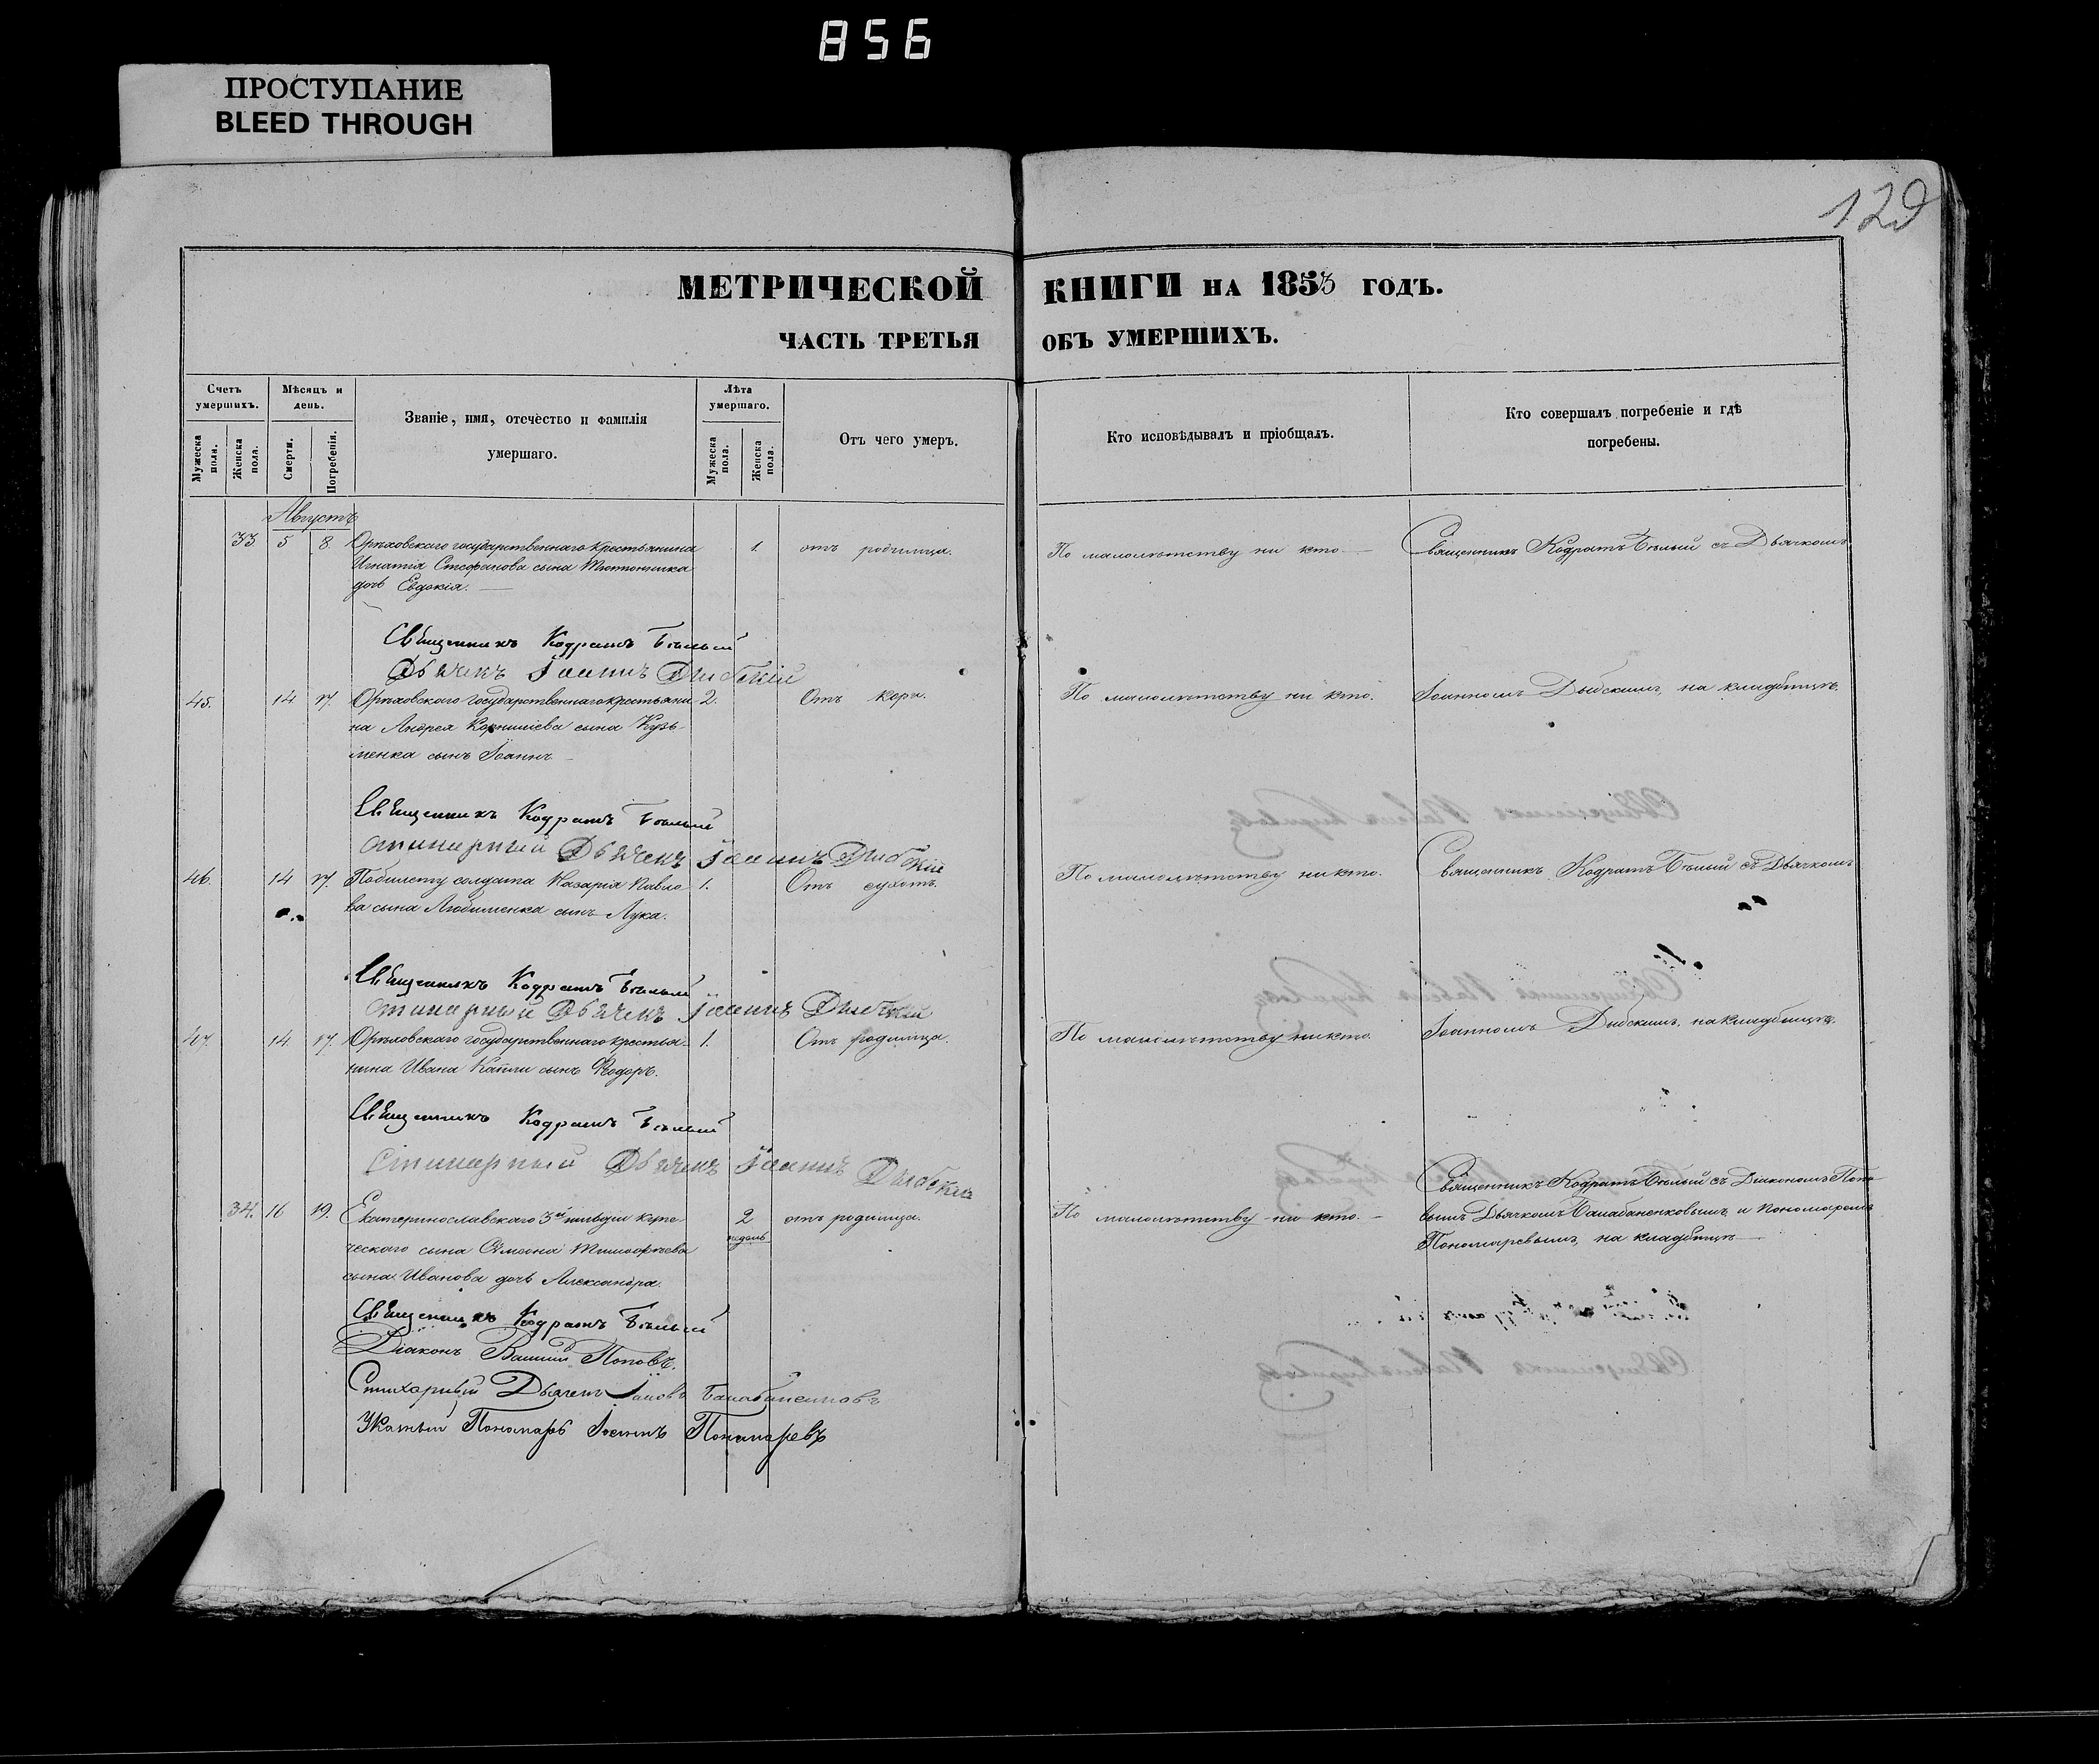 856
ПРОСТУПАНИЕ
BLEED THROUGH
129
МЕТРИЧЕСКОЙ КНИГИ НА 1853 ГОДЪ.
ЧАСТЬ ТРЕТЬЯ ОБЪ УМЕРШИХЪ.
Счетъ умершихъ.
Мужеска пола.
Женска пола.
Мѣсяцъ и день.
Смерти.
Погребенія.
Званіе, имя, отечество и фамилія
умершаго.
Лѣта умершаго.
Мужеска пола.
Женска пола.
Отъ чего умеръ.
Кто исповѣдывалъ и пріобщалъ.
Кто совершалъ погребеніе и гдѣ
погребены.
Августъ
33 5 8 Орѣховского государственнаго крестьянина 1. отъ родимца. По малолѣтству ни кто Священникъ Кодратъ Бѣлый съ Дьячкомъ
Игнатія Стефанова сына
дочь Евдокія.
Священникъ Кодратъ Бѣлый
Дьячекъ Іоаннъ Дыбскій
45. 14 17. Орѣховского государственнаго крестьяни- 2. Отъ кори. По малолѣтству ни кто. Іоанномъ Дыбскимъ, на кладбищѣ.
на Андрея Корнилiева сына Кузь-
менка сынъ Іоаннъ
Священникъ Кодратъ Бѣлый
стихарный Дьячекъ Іоаннъ Дыбскій
46. 14 17. Побилету солдата Назарія Павло- 1. Отъ сухотъ. По малолѣтству никто. Священникъ Кодратъ Бѣлый съ Дьячкомъ
ва сына Любименка сынъ Лука.
Священникъ Кодратъ Бѣлый
стихарный Дьячекъ Іоаннъ Дыбскій
47. 14. 17. Орѣховскаго государственнаго крестья- 1. Отъ родимца. По малолѣтству никто. Іоанномъ Дыбскимъ, на кладбищѣ.
нина Ивана Капли сынъ Ѳеодоръ.
Священникъ Кодратъ Бѣлый
Стихарный Дьячекъ Іоаннъ Дыбскій
34. 16 19. Екатеринославскаго 3й гильдіи купе- 2 недѣль отъ родимца. По малолѣтству ни кто. Священникъ Кодратъ Бѣлый съ Діакономъ Попо-
ческаго сына Симеона Тимоѳѣева вымъ Дьячкомъ Балабаненковымъ и Пономаремъ
сына Иванова дочь Александра. Пономаревымъ, на кладбищѣ
Священникъ Кодратъ Бѣлый
Діаконъ Поповъ.
Стихарный Дьячекъ Іаковъ Балабаненковъ
Указный Пономарь Іоаннъ Пономаревъ